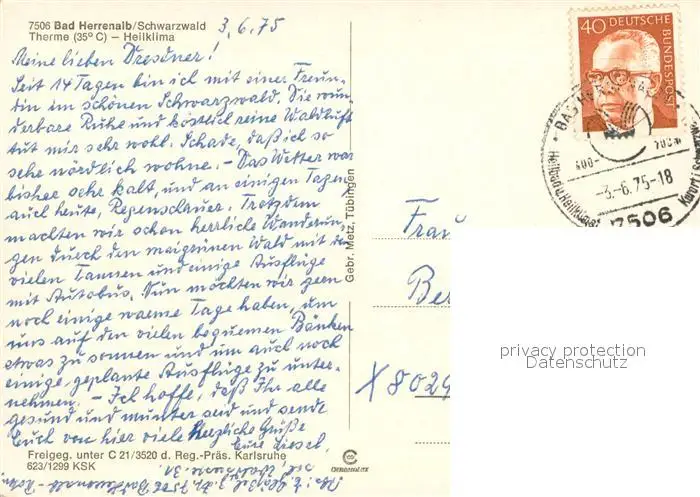 7506 Bad Herrenalb/Schwarzwald
Therme (35° C) – Heilklima
3.6.75
Meine lieben Dresdner!
Seit 14 Tagen bin ich mit einer Freun-
din im schönen Schwarzwald. Die wun-
derbare Ruhe und köstlich reine Waldluft
tut mir sehr wohl. Schade, daß ich so
sehr nördlich wohne. – Das Wetter war
bisher sehr kalt, und an einigen Tagen,
auch heute, Regenschauer. Trotzdem
machten wir schon herrliche Wanderun-
gen durch den maigrünen Wald mit den
vielen Tannen und einige Ausflüge
mit Autobus. Nun möchten wir gern
noch einige warme Tage haben, um
uns auf den vielen bequemen Bänken
etwas zu sonnen und um auch noch
einige geplante Ausflüge zu unter-
nehmen. – Ich hoffe, daß Ihr alle
gesund und munter seid und sende
Euch von hier viele herzliche Grüße
Eure Liesel
Freigeg. unter C 21/3520 d. Reg.-Präs. Karlsruhe
623/1299 KSK
7506 Bad Herrenalb
Gebr. Metz, Tübingen
40 DEUTSCHE BUNDESPOST
BAD HERRENALB
400-
700 m
-3.-6.75-18
7506
Frau
Be
X 8029
privacy protection
Datenschutz